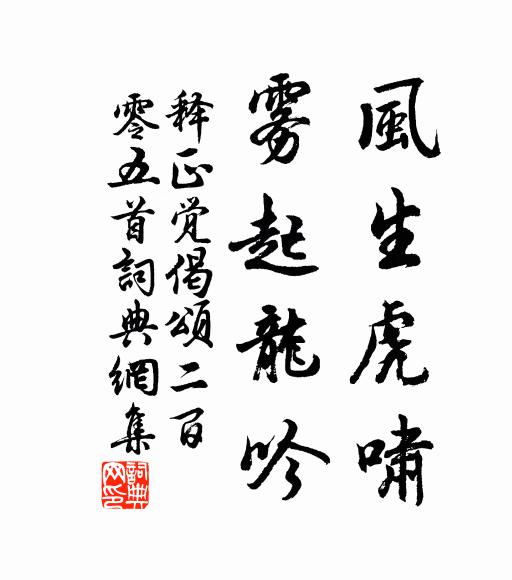 風生虎嘯
雾起龍吟
释正覺偈頌二百
零五首詞典網集
詞典网印